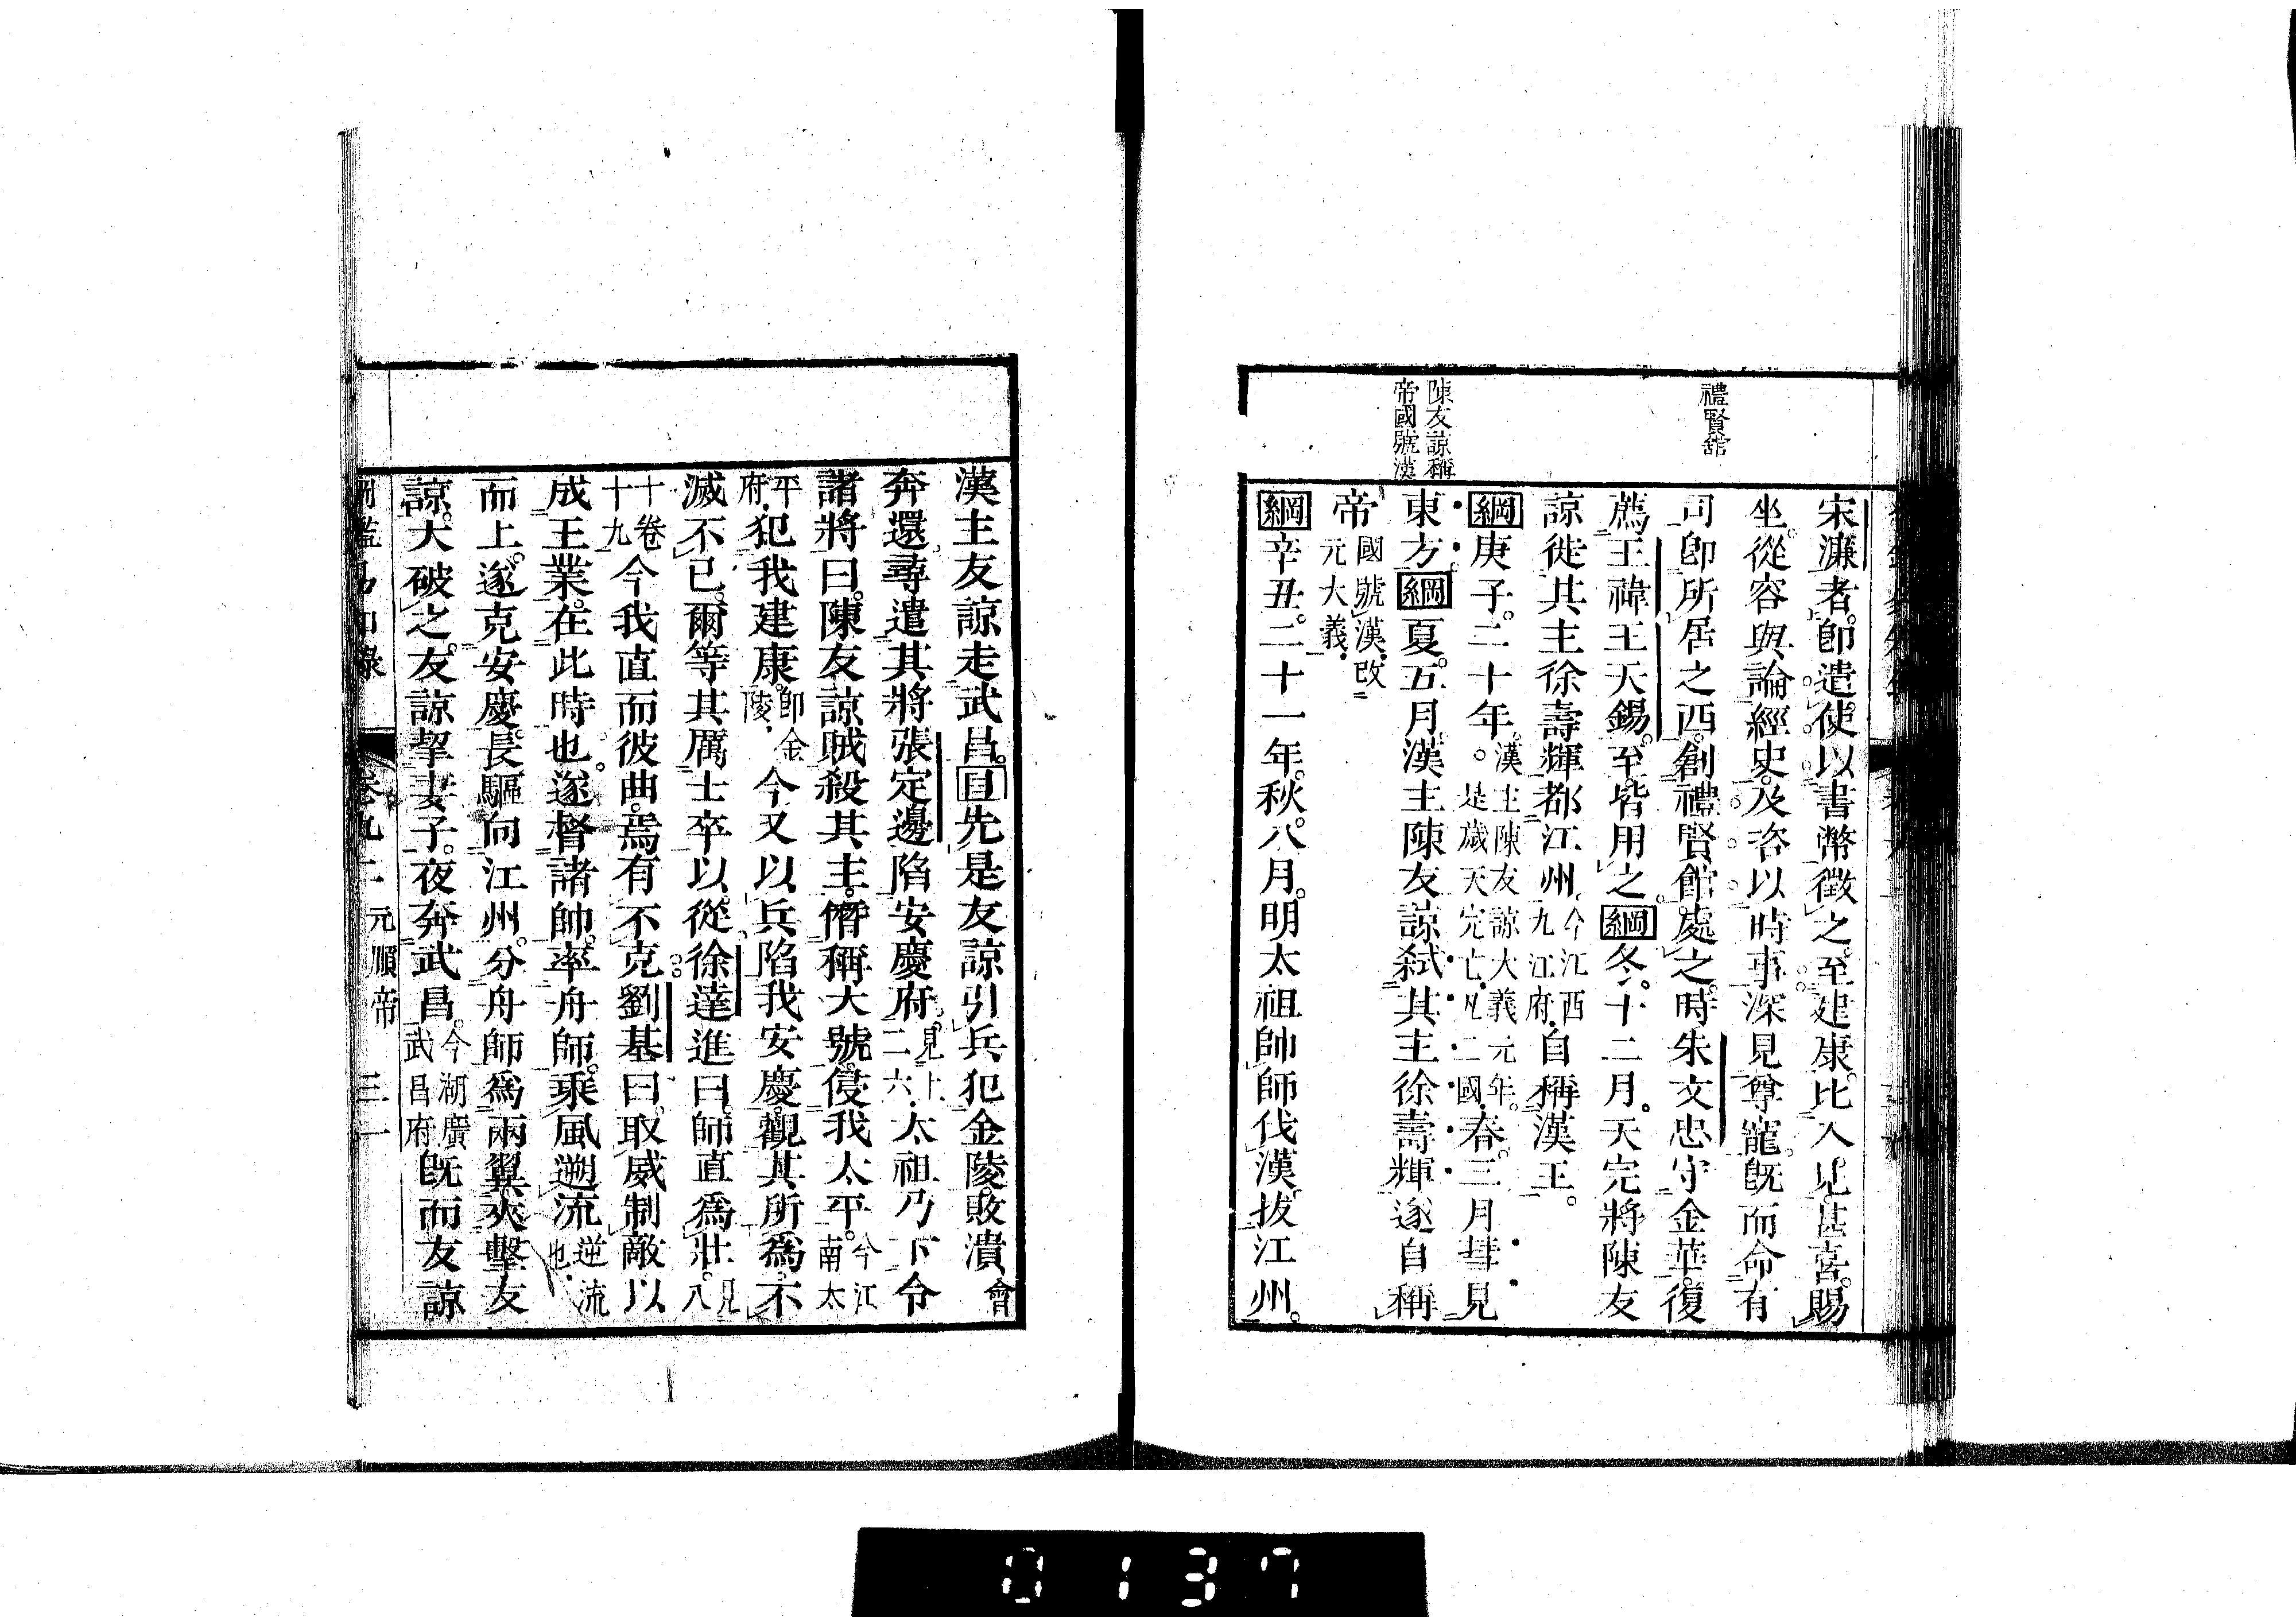 禮賢舘
陳友諒稱
帝國號漢
宋濂者。卽遣使以書幣徵之。至建康。比入見。甚喜。賜
坐。從容與論經史。及咨以時事。深見尊寵。旣而命有
司卽所居之西。創禮賢館處之。時朱文忠守金華。復
薦王禕王天錫。至。皆用之。綱冬。十二月。天完將陳友
諒徙其主徐壽輝都江州。今江西九江府。自稱漢王。
綱庚子。二十年。漢主陳友諒大義元年。是歲天完亡。凡二國。春。三月。彗見
東方。綱夏。五月。漢主陳友諒弑其主徐壽輝。遂自稱
帝國號漢。改元大義。
綱辛丑。二十一年。秋。八月。明太祖帥師伐漢。拔江州。
漢主友諒走武昌。目先是友諒引兵犯金陵。敗潰會
奔還。尋遣其將張定邊陷安慶府。見上二六。太祖乃下令
諸將曰。陳友諒賊殺其主。僭稱大號。侵我太平。今江南太
平府。犯我建康。卽金陵。今又以兵陷我安慶。觀其所爲。不
滅不已。爾等其厲士卒以從。徐達進曰。師直爲壯。見八
十卷十九今我直而彼曲。焉有不克。劉基曰。取威制敵以
成王業。在此時也。遂督諸帥。率舟師。乘風遡流逆流也。
而上。遂克安慶。長驅向江州。分舟師爲兩翼。夾擊友
諒。大破之。友諒挈妻子。夜奔武昌。今湖廣武昌府旣而友諒
綱鑑易知錄　卷九二　元順帝　三一
0137